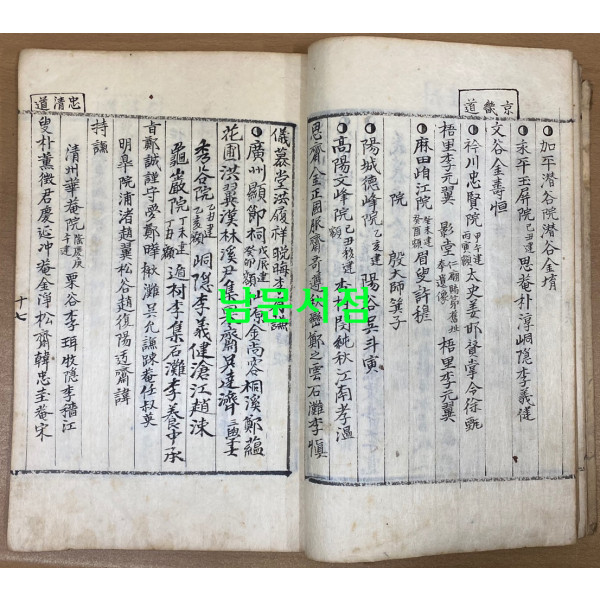 京畿道
加平潛谷院潛谷金堉
永平玉屏院己丑建思庵朴淳峒隱李義健
文谷金壽恒
衿川忠賢院甲午建丙寅額太史姜邯賛掌令徐甄
梧里李元翼 影堂仁廟賜第舊址奉遺像梧里李元翼
麻田湄江院癸未建癸酉額眉叟許穆
院 殷大師箕子
陽城德峰院乙亥建 陽谷吳斗寅
高陽文峰院
閔純秋江南孝溫
思齋金正國
鄭之雲石灘李愼
儀慕堂洪履祥晩晦
廣州顯節祠戊辰建癸卯額
金尚容桐溪鄭蘊
花圃洪翼漢林溪尹集
吳達濟
秀谷院乙丑建乙亥額峒隱李義健滄江趙涑
龜巖院丁未建丁丑額遁村李集石灘李養中承
旨鄭誠謹守夢鄭曄楸灘吳允謙踈菴任叔英
明皐院浦渚趙翼松谷趙復陽迃齋
持謙
忠清道
清州華菴院
栗谷李珥牧隱李穡江
叟朴薰徵君慶延冲菴金淨松齋韓忠圭菴宋
十七
남문서점